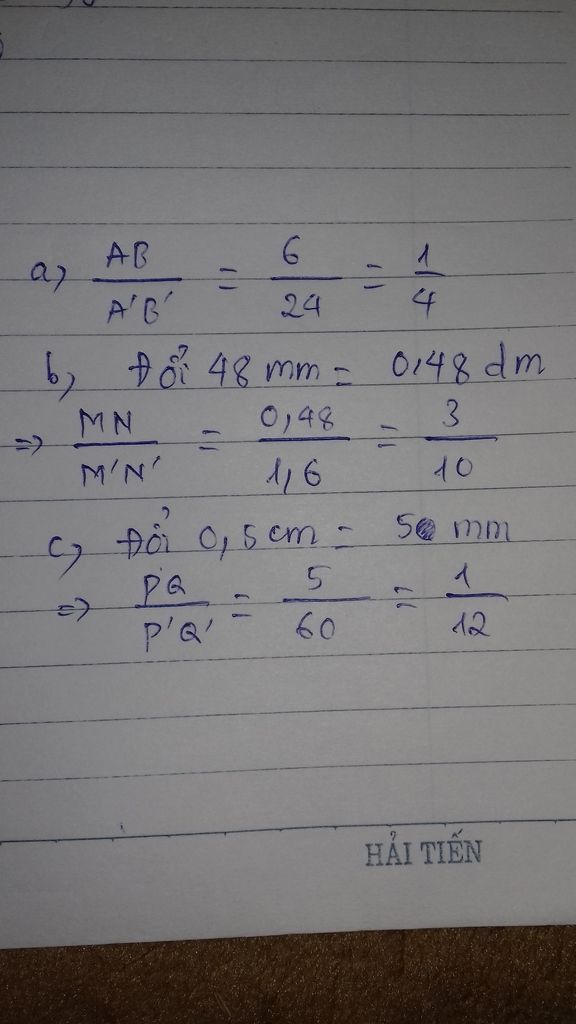 a) AB/A'B' = 6/24 = 1/4
b, Đổi 48 mm = 0,48 dm
=> MN/M'N' = 0,48/1,6 = 3/10
c, Đổi 0,5 cm = 5 mm
=> PQ/P'Q' = 5/60 = 1/12
HẢI TIẾN